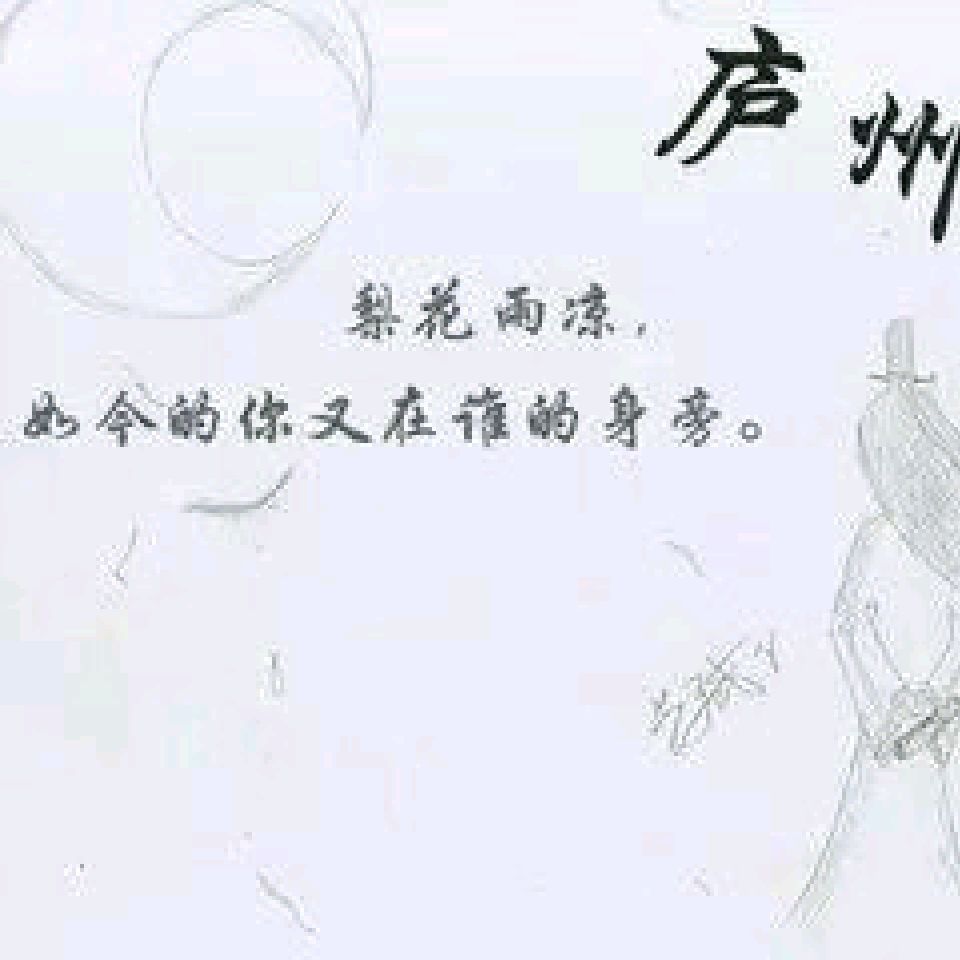 庐州
梨花雨凉，
如今的你又在谁的身旁。